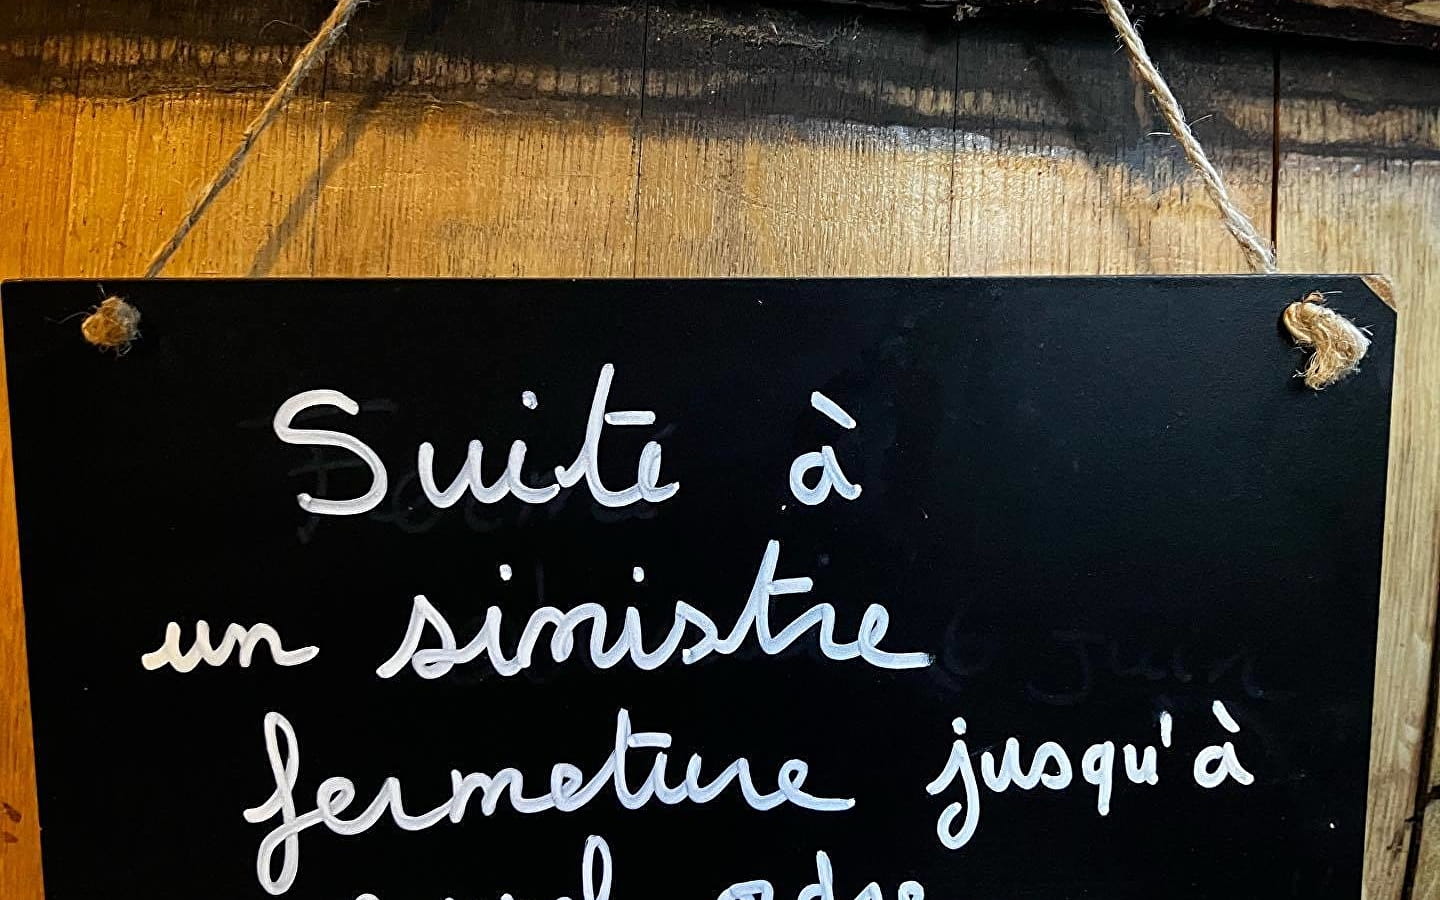 Suite à
un sinistre
fermeture jusqu'à
ordre